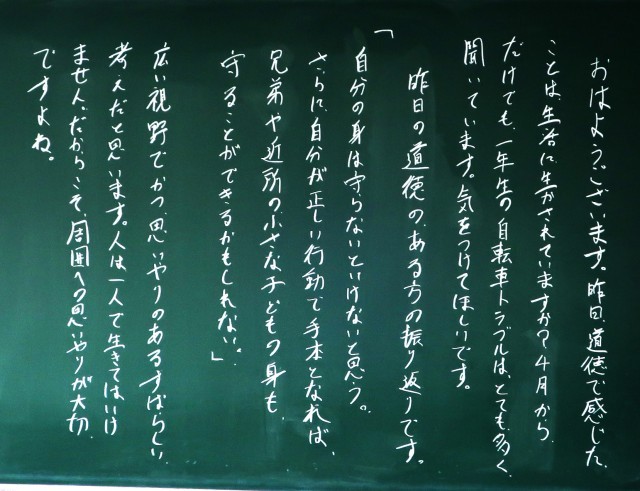 おはようございます。昨日、道徳で感じた
ことは、生活に生かされていますか？4月から
だけでも、一年生の自転車トラブルは、とても多く
聞いています。気をつけてほしいです。
昨日の道徳の、ある方の振り返りです。
「自分の身は守らないといけないと思う。
さらに、自分が正しい行動で手本となれば、
兄弟や近所の小さな子どもの身も、
守ることができるかもしれない。」
広い視野でかつ、思いやりのあるすばらしい
考えだと思います。人は一人で生きてはいけ
ません。だからこそ、周囲への思いやりが大切
ですよね。